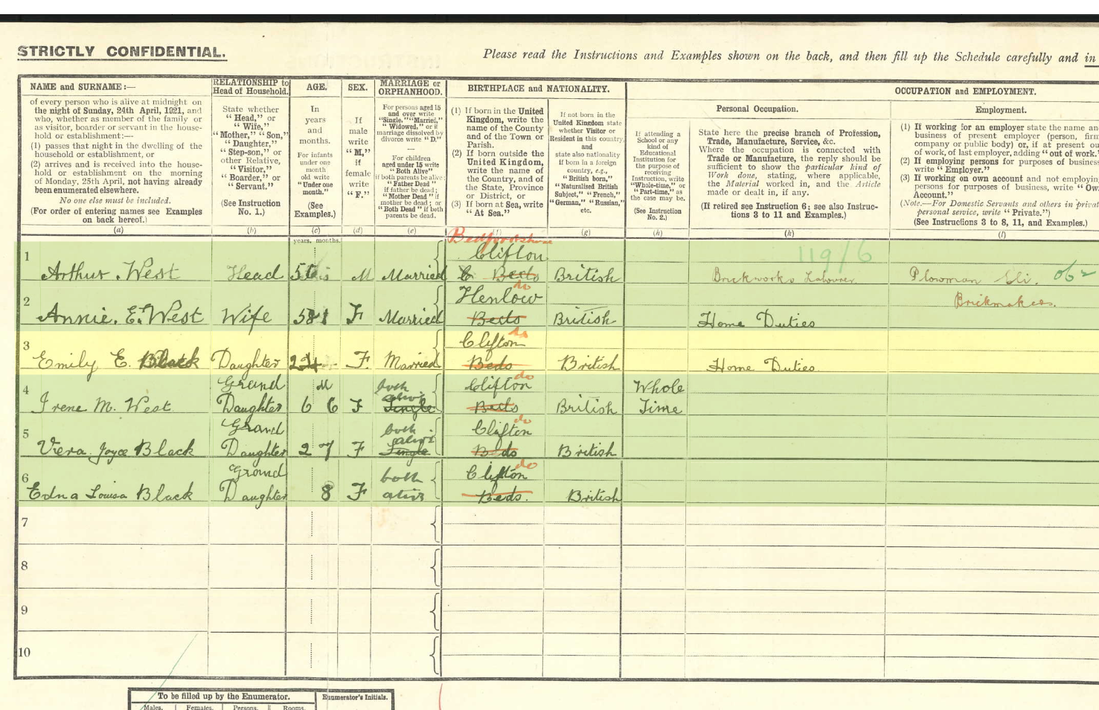 STRICTLY CONFIDENTIAL.
Please read the Instructions and Examples shown on the back, and then fill up the Schedule carefully and in
NAME and SURNAME:—
of every person who is alive at midnight on
the night of Sunday, 24th April, 1921, and
who, whether as member of the family or
as visitor, boarder or servant in the house-
hold or establishment:—
(1) passes that night in the dwelling of
the household or establishment, or
(2) arrives and is received into the house-
hold or establishment on the morning
of Monday, 25th April, not having already
been enumerated elsewhere.
No one else must be included.
(For order of entering names see Examples
on back hereof.)
(a)
RELATIONSHIP to
Head of Household.
State whether
"Head," or
"Wife,"
"Mother," "Son,"
"Daughter,"
"Step-son," or
other Relative,
"Visitor,"
"Boarder," or
"Servant."
(See Instruction
No. 1.)
(b)
AGE.
In
years
and
months.
For infants
under one
month old
write "Under one
month."
(See
Examples.)
(c)
years.
months.
SEX.
If
male
write
"M,"
if
female
write
"F."
(d)
MARRIAGE or
ORPHANHOOD.
For persons aged 15
and over write
"Single," "Married,"
"Widowed," or if
marriage dissolved by
divorce write "D."
For children
aged under 15 write
"Both Alive"
if both parents be alive
"Father Dead"
if father be dead;
"Mother Dead" if
mother be dead; or
"Both Dead" if both
parents be dead.
(e)
BIRTHPLACE and NATIONALITY.
(1) If born in the United
Kingdom, write the
name of the County
and of the Town or
Parish.
(2) If born outside the
United Kingdom,
write the name of
the Country, and of
the State, Province
or District, or
(3) If born at Sea, write
"At Sea."
(f)
If not born in the
United Kingdom state
whether Visitor or
Resident in this country,
and
state also nationality
if born in a foreign
country, e.g.,
"British born,"
"Naturalised British
Subject," "French,"
"German," "Russian,"
etc.
(g)
If attending a
School or any
kind of
Educational
Institution for
the purpose of
receiving
Instruction, write
"Whole-time," or
"Part-time," as
the case may be.
(See Instruction
No. 2.)
(h)
OCCUPATION and EMPLOYMENT.
Personal Occupation.
State here the precise branch of Profession,
Trade, Manufacture, Service, &c.
Where the occupation is connected with
Trade or Manufacture, the reply should be
sufficient to show the particular kind of
Work done, stating, where applicable,
the Material worked in, and the Article
made or dealt in, if any.
(If retired see Instruction 6; see also Instruc-
tions 3 to 11 and Examples.)
(k)
Employment.
(1) If working for an employer state the name an
business of present employer (person, firm
company or public body) or, if at present ou
of work, of last employer, adding "out of work."
(2) If employing persons for purposes of busines
write "Employer."
(3) If working on own account and not employin
persons for purposes of business, write "Ow
Account."
(Note.—For Domestic Servants and others in private
personal service, write "Private.")
(See Instructions 3 to 8, 11, and Examples.)
(l)
1 Arthur West Head M Married Bedfordshire Clifton Beds British 119/6 Brickworks Labourer Plowman
Brickmaker
2 Annie. E. West Wife F Married Henlow do Beds British Home Duties
3 Emily E. Black Daughter 24 F Married Clifton do Beds British Home Duties
4 Irene M. West Grand Daughter 6 6 M F both alive Single Clifton do Beds British Whole Time
5 Vera Joyce Black Grand Daughter 2 7 F both alive Single Clifton Beds do British
6 Edna Louisa Black Grand Daughter 8 F both alive Clifton do Beds. British
7
8
9
10
To be filled up by the Enumerator.
Enumerator's Initials.
Males.
Females.
Persons.
Rooms.